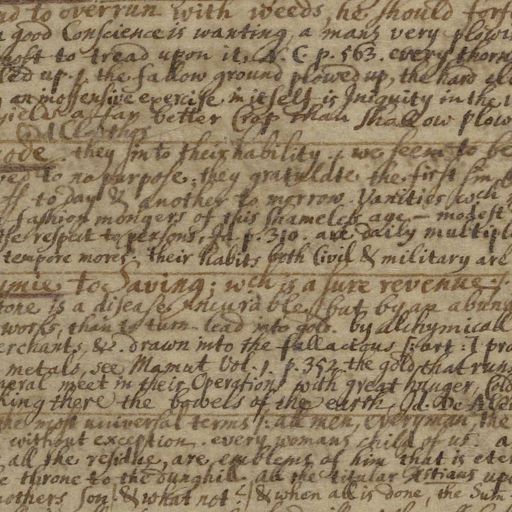 nd to overrun with weeds, he should
a good Conscience is wanting, a mans very plowi
most to tread upon it, N. C p. 563. every thorn
led up. the fallow ground plowed up, the hard
an inoffensive exercise in it self is Iniquity in the
yields a far better Crop than shallow plow
Old Clothes
ode. they sin to their hability, we seem to be
to no purpose, they gratulate the first
off to day & another to morrow. Vanities wch
fashion mongers of this shameless age — modest
respect to persons, Id. p. 310. are daily multipl
tempore mores; their habits both Civil & military are
mie to Saving; wch is a sure revenue
tone is a disease incurable, but by an abun
works, than to turn lead into gold. by alchymicall
erchants, &c drawn into the fallacious : I pro
metals, see Mamut Vol. 1. p. 352 the gold that runs
neral meet in their Operations with great hunger, Cold
king there the bowels of the earth, Id. De
the most universal terms: all men, everyman, the
without exception. every womans child of us. a
all the residue, are emblems of him that is eter
e throne to the dunghill. all the titular upo
mothers son, & what not & when all is done, the Sum